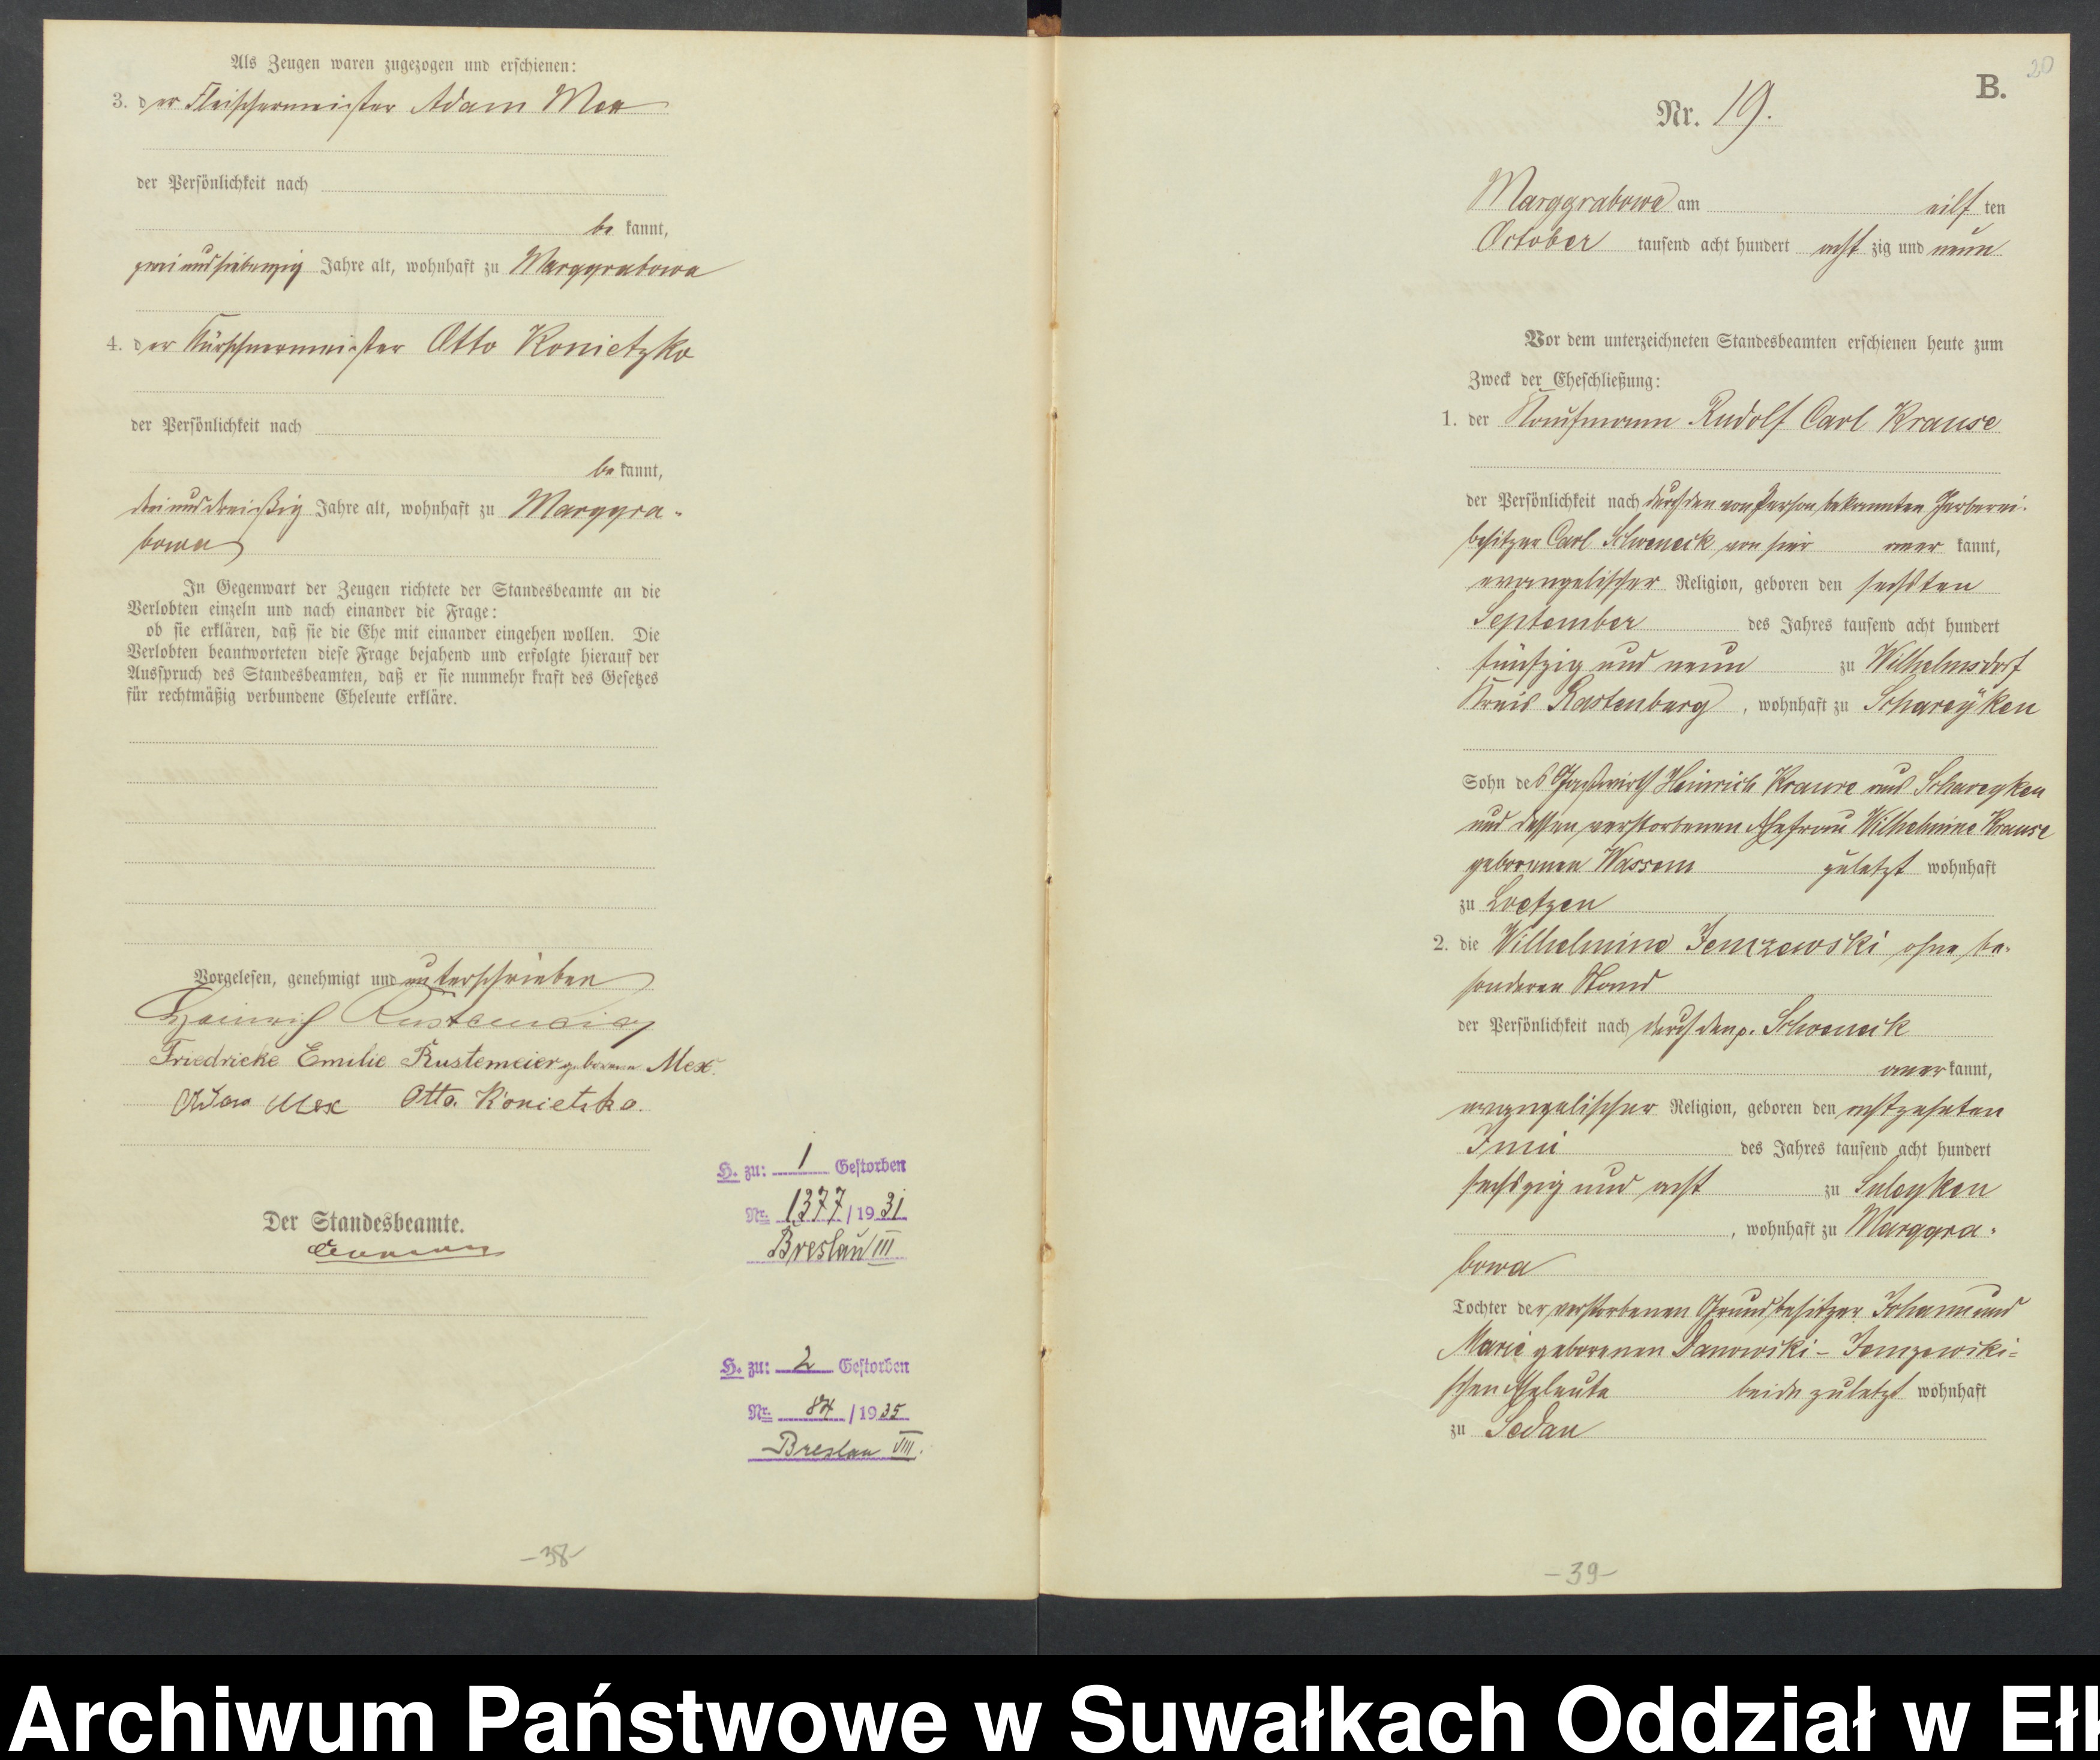 Als Zeugen waren zugezogen und erschienen:
3. der Fleischermeister Adam Mex
der Persönlichkeit nach
be kannt,
zweiundsiebenzig Jahre alt, wohnhaft zu Marggrabowa
4. der Kürschnermeister Otto Konietzko
der Persönlichkeit nach
be kannt,
dreiunddreißig Jahre alt, wohnhaft zu Marggra-
bowa
In Gegenwart der Zeugen richtete der Standesbeamte an die
Verlobten einzeln und nach einander die Frage:
ob sie erklären, daß sie die Ehe mit einander eingehen wollen. Die
Verlobten beantworteten diese Frage bejahend und erfolgte hierauf der
Ausspruch des Standesbeamten, daß er sie nunmehr kraft des Gesetzes
für rechtmäßig verbundene Eheleute erkläre.
Vorgelesen, genehmigt und unterschrieben
Heinrich Rustemeier
Friedricke Emilie Rustemeier geborene Mex.
Adam Mex Otto Konietzko.
Der Standesbeamte.
H. zu: 1 Gestorben
Nr. 1377/1931
Breslau III
H. zu: 2 Gestorben
Nr. 84/1935
Breslau VIII.
-38-
20
B.
Nr. 19.
Marggrabowa am eilf ten
October tausend acht hundert acht zig und neun
Vor dem unterzeichneten Standesbeamten erschienen heute zum
Zweck der Eheschließung:
1. der Kaufmann Rudolf Carl Krause
der Persönlichkeit nach durch den von Person bekannten Gerberei-
besitzer Carl Schweneck von hier aner kannt,
evangelischer Religion, geboren den sechsten
September des Jahres tausend acht hundert
fünfzig und neun zu Wilhelmsdorf
Kreis Rastenburg, wohnhaft zu Schareyken
Sohn des Gastwirth Heinrich Krause aus Schareyken
und dessen verstorbenen Ehefrau Wilhelmine Krause
geborenen Wassem zuletzt wohnhaft
zu Loetzen
2. die Wilhelmine Jemzewski ohne be-
sonderen Stand
der Persönlichkeit nach durch den p. Schweneck
aner kannt,
evangelischer Religion, geboren den achtzehnten
Juni des Jahres tausend acht hundert
sechszig und acht zu Suleyken
, wohnhaft zu Marggra-
bowa
Tochter der verstorbenen Grundbesitzer Johann und
Marie geborenen Danowski - Jemzewski-
schen Eheleute beide zuletzt wohnhaft
zu Sedan
-39-
Archiwum Państwowe w Suwałkach Oddział w Ełk